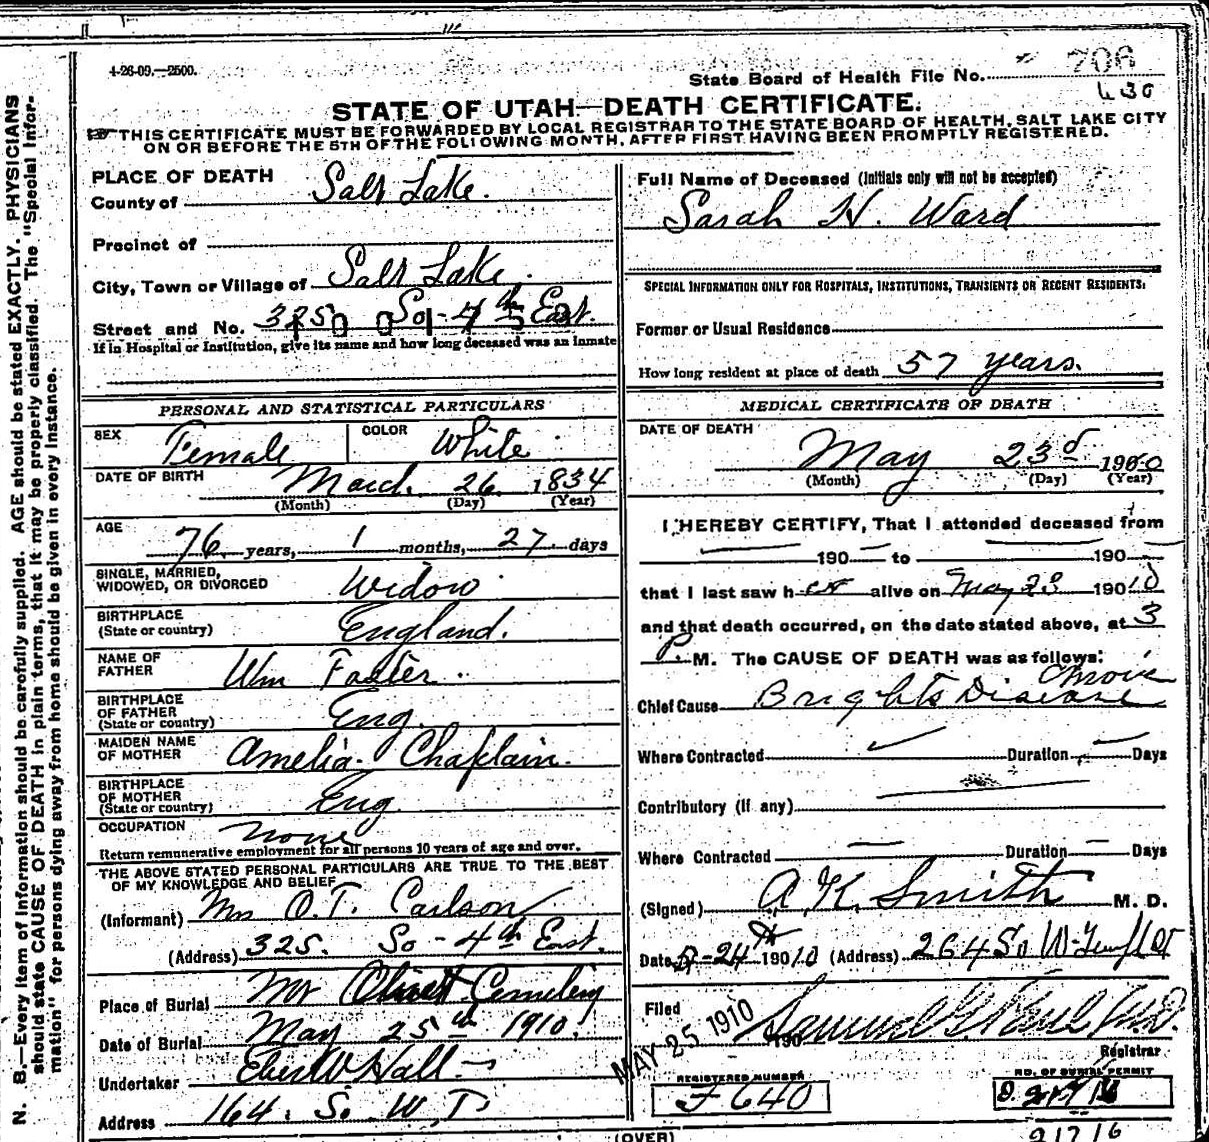 4-26-09.—2500.
State Board of Health File No. 706
630
STATE OF UTAH—DEATH CERTIFICATE.
THIS CERTIFICATE MUST BE FORWARDED BY LOCAL REGISTRAR TO THE STATE BOARD OF HEALTH, SALT LAKE CITY
ON OR BEFORE THE 5TH OF THE FOLLOWING MONTH, AFTER FIRST HAVING BEEN PROMPTLY REGISTERED.
PLACE OF DEATH
County of Salt Lake.
Precinct of
City, Town or Village of Salt Lake.
Street and No. 325 So - 4th East.
If in Hospital or Institution, give its name and how long deceased was an Inmate
Full Name of Deceased (Initials only will not be accepted)
Sarah H. Ward
SPECIAL INFORMATION ONLY FOR HOSPITALS, INSTITUTIONS, TRANSIENTS OR RECENT RESIDENTS:
Former or Usual Residence
How long resident at place of death 57 years.
PERSONAL AND STATISTICAL PARTICULARS
SEX Female COLOR White
DATE OF BIRTH March 26 1834
(Month) (Day) (Year)
AGE
76 years, 1 months, 27 days
SINGLE, MARRIED,
WIDOWED, OR DIVORCED Widow
BIRTHPLACE
(State or country) England.
NAME OF
FATHER Wm
BIRTHPLACE
OF FATHER
(State or country) Eng.
MAIDEN NAME
OF MOTHER Amelia Chaplain.
BIRTHPLACE
OF MOTHER
(State or country) Eng
OCCUPATION none
Return remunerative employment for all persons 10 years of age and over.
THE ABOVE STATED PERSONAL PARTICULARS ARE TRUE TO THE BEST
OF MY KNOWLEDGE AND BELIEF
(Informant) Mrs O.T. Carlson
(Address) 325. So - 4th East.
Place of Burial Mt Olivet Cemetery
Date of Burial May 25th 1910.
Undertaker Eber W Hall
Address 164. So. W. T.
MEDICAL CERTIFICATE OF DEATH
DATE OF DEATH
May 23d 1910
(Month) (Day) (Year)
I HEREBY CERTIFY, That I attended deceased from
— 190 — to — 190 —
that I last saw her alive on May 23 1910
and that death occurred, on the date stated above, at 3
P. M. The CAUSE OF DEATH was as follows:
Chronic
Chief Cause Brights Disease
Where Contracted Duration — Days
Contributory (if any)
Where Contracted — Duration — Days
(Signed) A.K. Smith M. D.
Date 24th 1910 (Address) 264 So W-Temple St
Filed MAY 25 1910 190 Samuel G. Paul M.D.
Registrar
REGISTERED NUMBER
F 640
NO. OF BURIAL PERMIT
D.
21716
(OVER)
N. B.—Every item of information should be carefully supplied. AGE should be stated EXACTLY. PHYSICIANS
should state CAUSE OF DEATH in plain terms, that it may be properly classified. The "Special Infor-
mation" for persons dying away from home should be given in every instance.